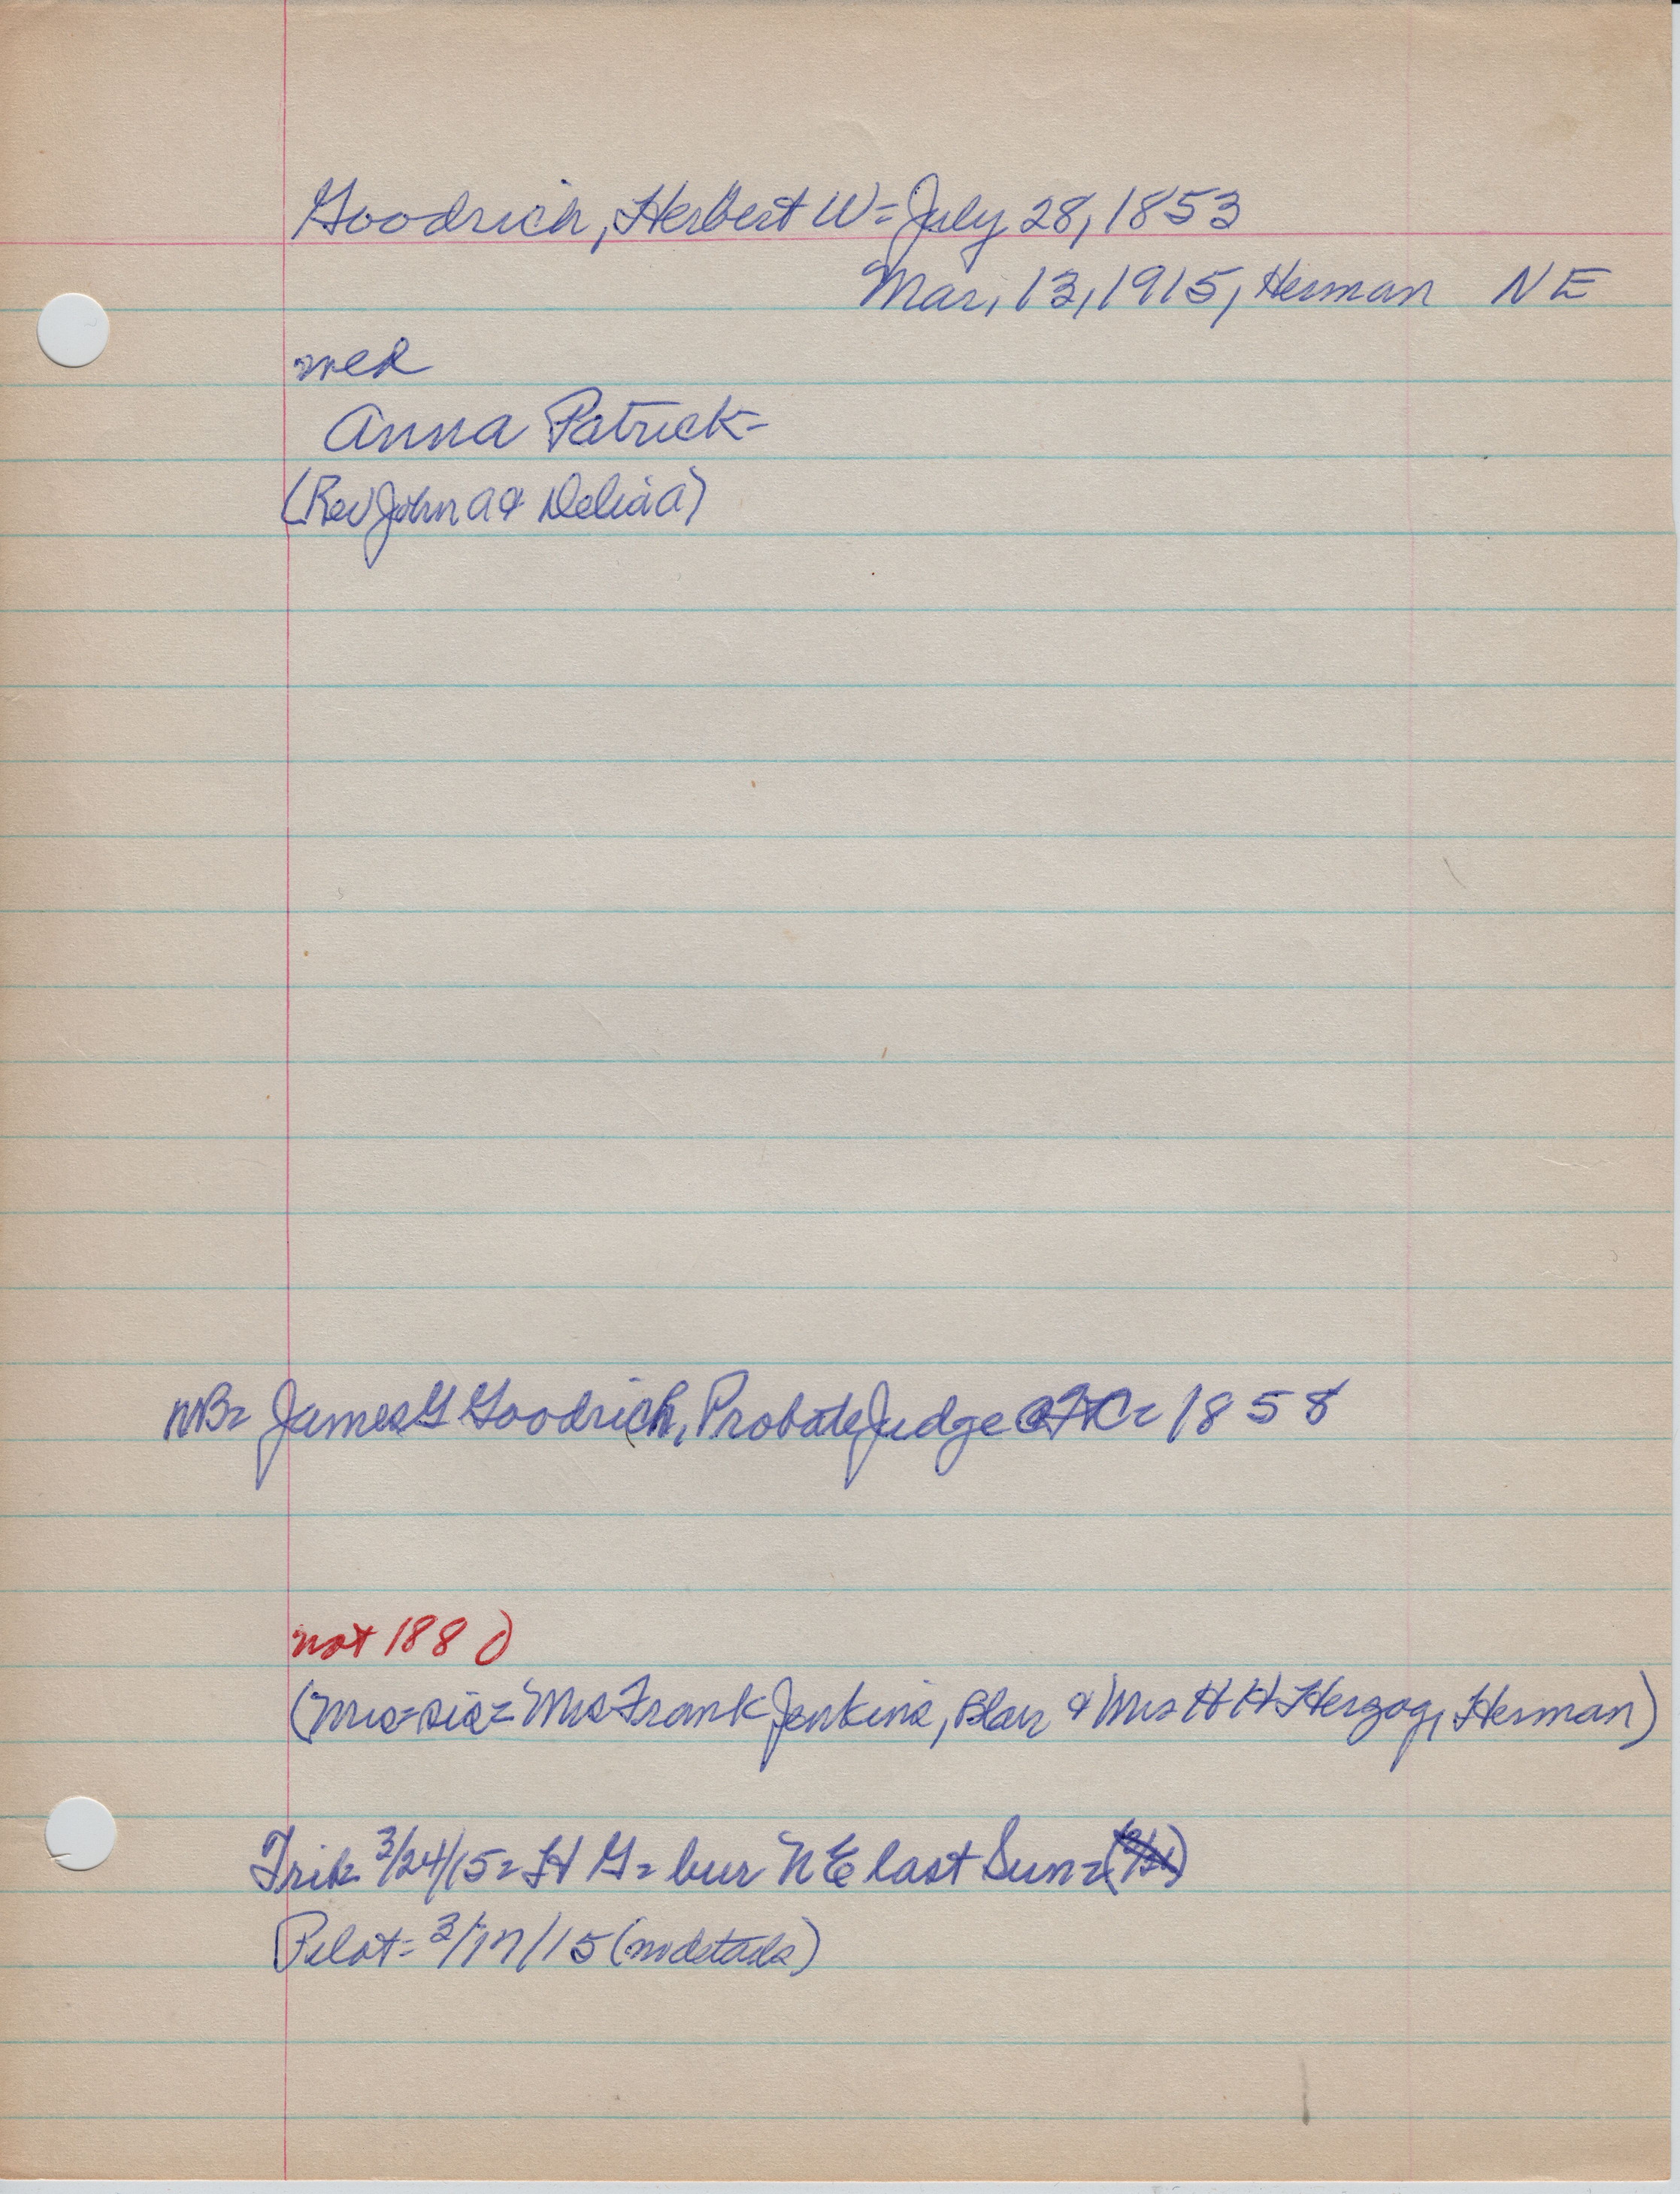 Goodrich, Herbert W = July 28, 1853
Mar, 13, 1915, Herman NE
med
Anna Patrick-
(Rev John A & Delia A)
NB= James G Goodrich, Probate Judge = 1858
not 1880
(Mrs=sis= Mrs Frank Jenkins, Blair & Mrs H H Herzog, Herman)
Trib 3/24/15= H G= bur NE last Sun=
Pilot= 3/17/15 (no details)